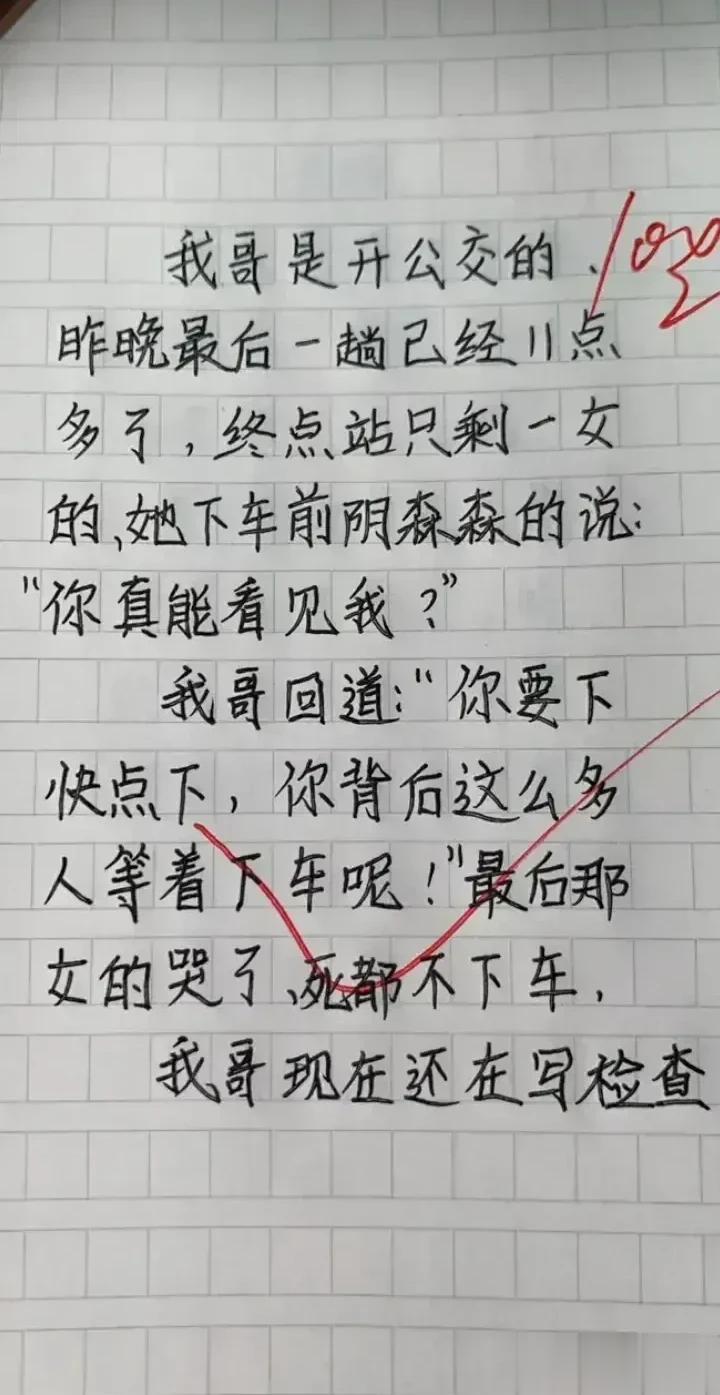 我哥是开公交的、
昨晚最后一趟已经11点
多了，终点站只剩一女
的、她下车前阴森森的说：
“你真能看见我？”
我哥回道：“你要下
快点下，你背后这么多
人等着下车呢！”最后那
女的哭了、死都不下车，
我哥现在还在写检查
100